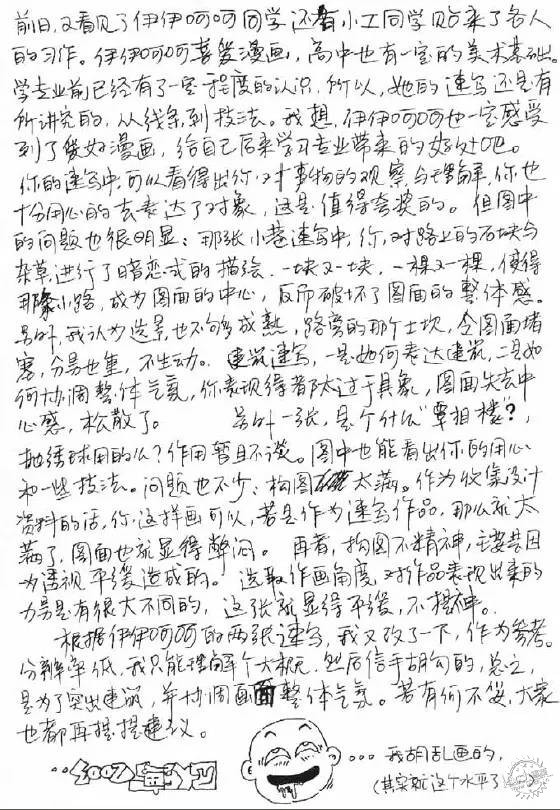 前日,又看见了伊伊呵呵同学还有小工同学贴来了各人
的习作。伊伊呵呵喜爱漫画,高中也有一定的美术基础。
学专业前已经有了一定程度的认识,所以,她的速写还是有
所讲究的,从线条到技法。我想,伊伊呵呵也一定感受
到了爱好漫画,给自己后来学习专业带来的好处吧。
你的速写中,可以看得出你对事物的观察与理解,你也
十分用心的去表达了对象,这是值得夸奖的。但图中
的问题也很明显:那张小巷速写中,你对路上的石块与
杂草进行了暗恋式的描绘,一块又一块,一棵又一棵,使得
那条小路,成为图面的中心,反而破坏了图面的整体感。
另外,我认为造景也不够成熟,路旁的那个土坎,令图面堵
塞,分量也重,不生动。建筑速写,一是如何表达建筑,二是如
何协调整体气氛,你表现得都太过于具象,图面失去中
心感,松散了。 另外一张,是个什么"章相楼"?,
抛绣球用的么?作用暂且不谈。图中也能看出你的用心
和一些技法。问题也不少:构图太满。作为收集设计
资料的话,你这样画可以,若是作为速写作品,那么就太
满了,图面也就显得弊闷。再者,构图不精神,主要是因
为透视平缓造成的。选取作画角度,对作品表现出来的
力量是有很大不同的,这张就显得平缓,不提神。
根据伊伊呵呵的两张速写,我又改了一下,作为参考。
分辨率低,我只能理解个大概,然后信手胡勾的,总之,
是为了突出建筑,并协调画面整体气氛。若有何不妥,大家
也都再提提建议。
...我胡乱画的,
(其实就这个水平了